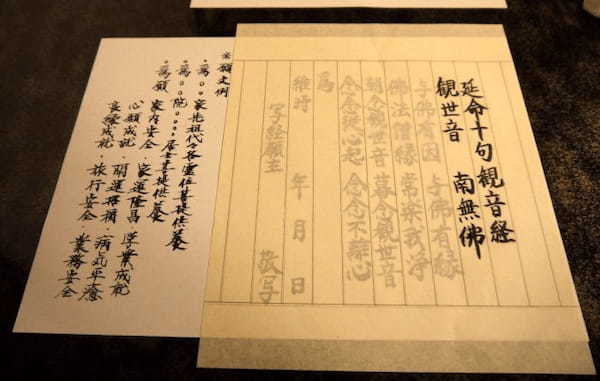 延命十句観音経
観世音 南無佛
与佛有因 与佛有縁
佛法僧縁 常楽我浄
朝念観世音 暮念観世音
念念従心起 念念不離心
為
維時 年 月 日
写経願主 敬写
願文例
・為○○家先祖代々各霊位菩提供養
・為○○院○○○○居士菩提供養
・為願 家内安全・家運隆昌 学業成就
心願成就・開運招福・病気平癒
良縁成就・旅行安全・業務安全